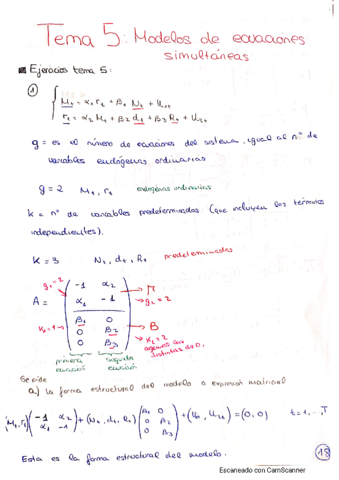 Tema 5: Modelos de ecuaciones
simultáneas
Ejercicios tema 5:
① { Mt = α1 rt + β1 Nt + U1t
rt = α2 Mt + β2 dt + β3 Rt + U2t
g = es el número de ecuaciones del sistema, igual al nº de
variables endógenas ordinarias
g = 2 Mt, rt endógenas ordinarias
k = nº de variables predeterminadas (que incluyen los términos
independientes).
K = 3 Nt, dt, Rt predeterminadas
g1 = 2
-1 α2 → Γ
A = α1 -1 → g2 = 2
K1 = 1 → β1 0 → B
0 β2
0 β3 → K2 = 2
distintas de 0.
primera ecuación
segunda ecuación
Se pide
a) La forma estructural del modelo o expresión matricial
(Mt, rt) (-1 α2 α1 -1) + (Nt, dt, Rt) (β1 0 0 β2 0 β3) + (U1t, U2t) = (0, 0) t = 1, ..., T
Esta es la forma estructural del modelo.
18
Escaneado con CamScanner